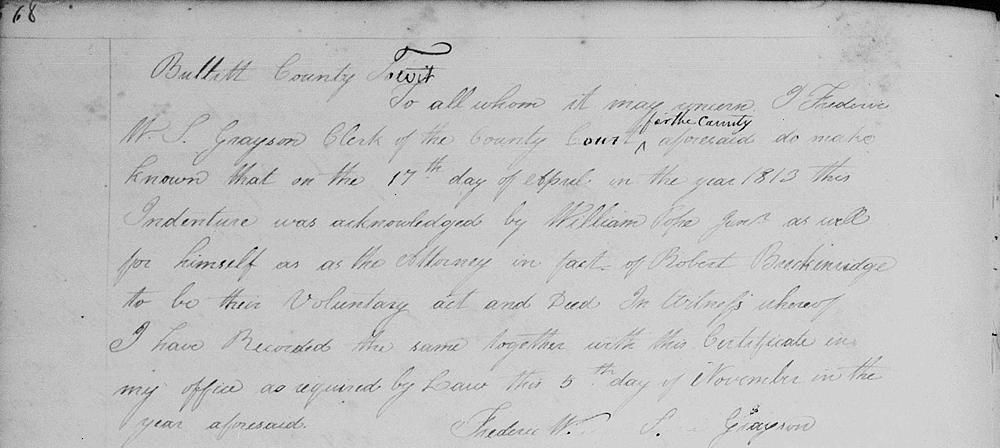 68
Bullitt County Towit
To all whom it may concern I Frederic
W. S. Grayson Clerk of the County Court for the County aforesaid do make
known that on the 17th day of April in the year 1813 this
Indenture was acknowledged by William Pope Junr as well
for himself as as the Attorney in fact of Robert Breckinridge
to be their Voluntary act and Deed In Witness whereof
I have Recorded the same together with this Certificate in
my office as required by Law this 5th day of November in the
year aforesaid. Frederic W. S. Grayson